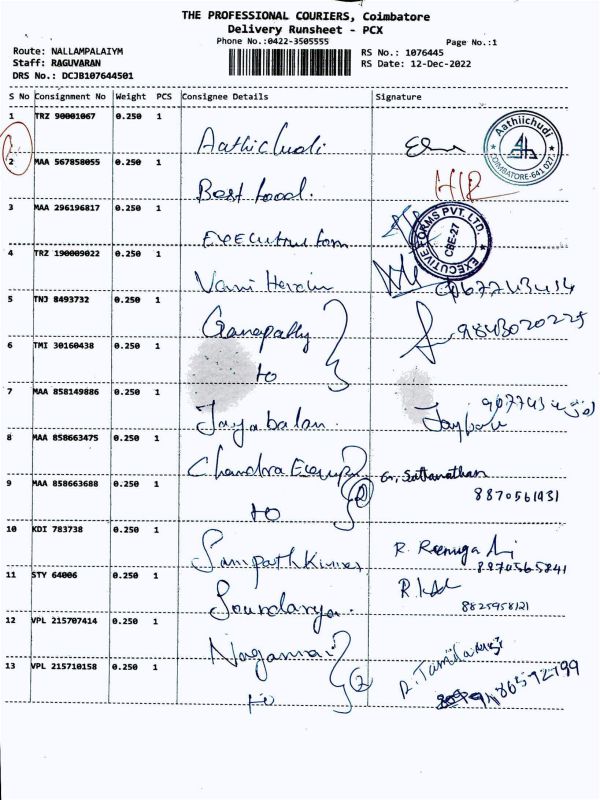 THE PROFESSIONAL COURIERS, Coimbatore
Delivery Runsheet - PCX
Phone No.:0422-3505555
Page No.:1
Route: NALLAMPALAIYM
RS No.: 1076445
Staff: RAGUVARAN
RS Date: 12-Dec-2022
DRS No.: DCJB107644501
S No Consignment No Weight PCS Consignee Details Signature
1 TRZ 90001067 0.250 1 Aathichudi
Aathiichudi
COIMBATORE-641 027.
2 MAA 567858055 0.250 1 Best food.
3 MAA 296196817 0.250 1 Executive form
EXECUTIVE FORMS PVT. LTD.
CBE-27
4 TRZ 190009022 0.250 1 Vani
5 TNJ 8493732 0.250 1 Ganapathy 9843020225
6 TMI 30160438 0.250 1 to
7 MAA 858149886 0.250 1 Jayabalan.
8 MAA 858663475 0.250 1 Chandra G. Sattanathan
9 MAA 858663688 0.250 1 to 2 8870561931
10 KDI 783738 0.250 1 Sampathkumar R. Renuga 8870565841
11 STY 64006 0.250 1 Soundarya. 8825958121
12 VPL 215707414 0.250 1 Nagamani
13 VPL 215710158 0.250 1 to 2